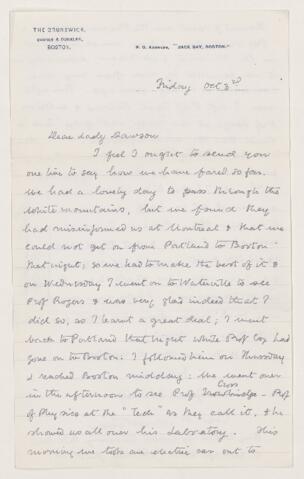 THE BRUNSWICK,
BARNES & DUNKLEE,
BOSTON.
P. O. ADDRESS, "BACK BAY, BOSTON."
Friday Oct 3rd
Dear Lady Dawson
I feel I ought to send you
one line to say how we have fared so far.
We had a lovely day to pass through the
White Mountains, but we found they
had misinformed us at Montreal & that we
could not get on from Portland to Boston
that night; so we had to make the best of it &
on Wednesday I went on to Waterville to see
Prof Rogers & was very glad indeed that I
did so, as I learnt a great deal; I went
back to Portland that night while Prof Cox had
gone on to Boston: I followed him on Thursday
& reached Boston midday: we went over
in the afternoon to see Prof Cross
Trowbridge - Prof
of Physics at the "Tech" as they call it, & he
showed us all over his Laboratory. This
morning we took an electric car out to